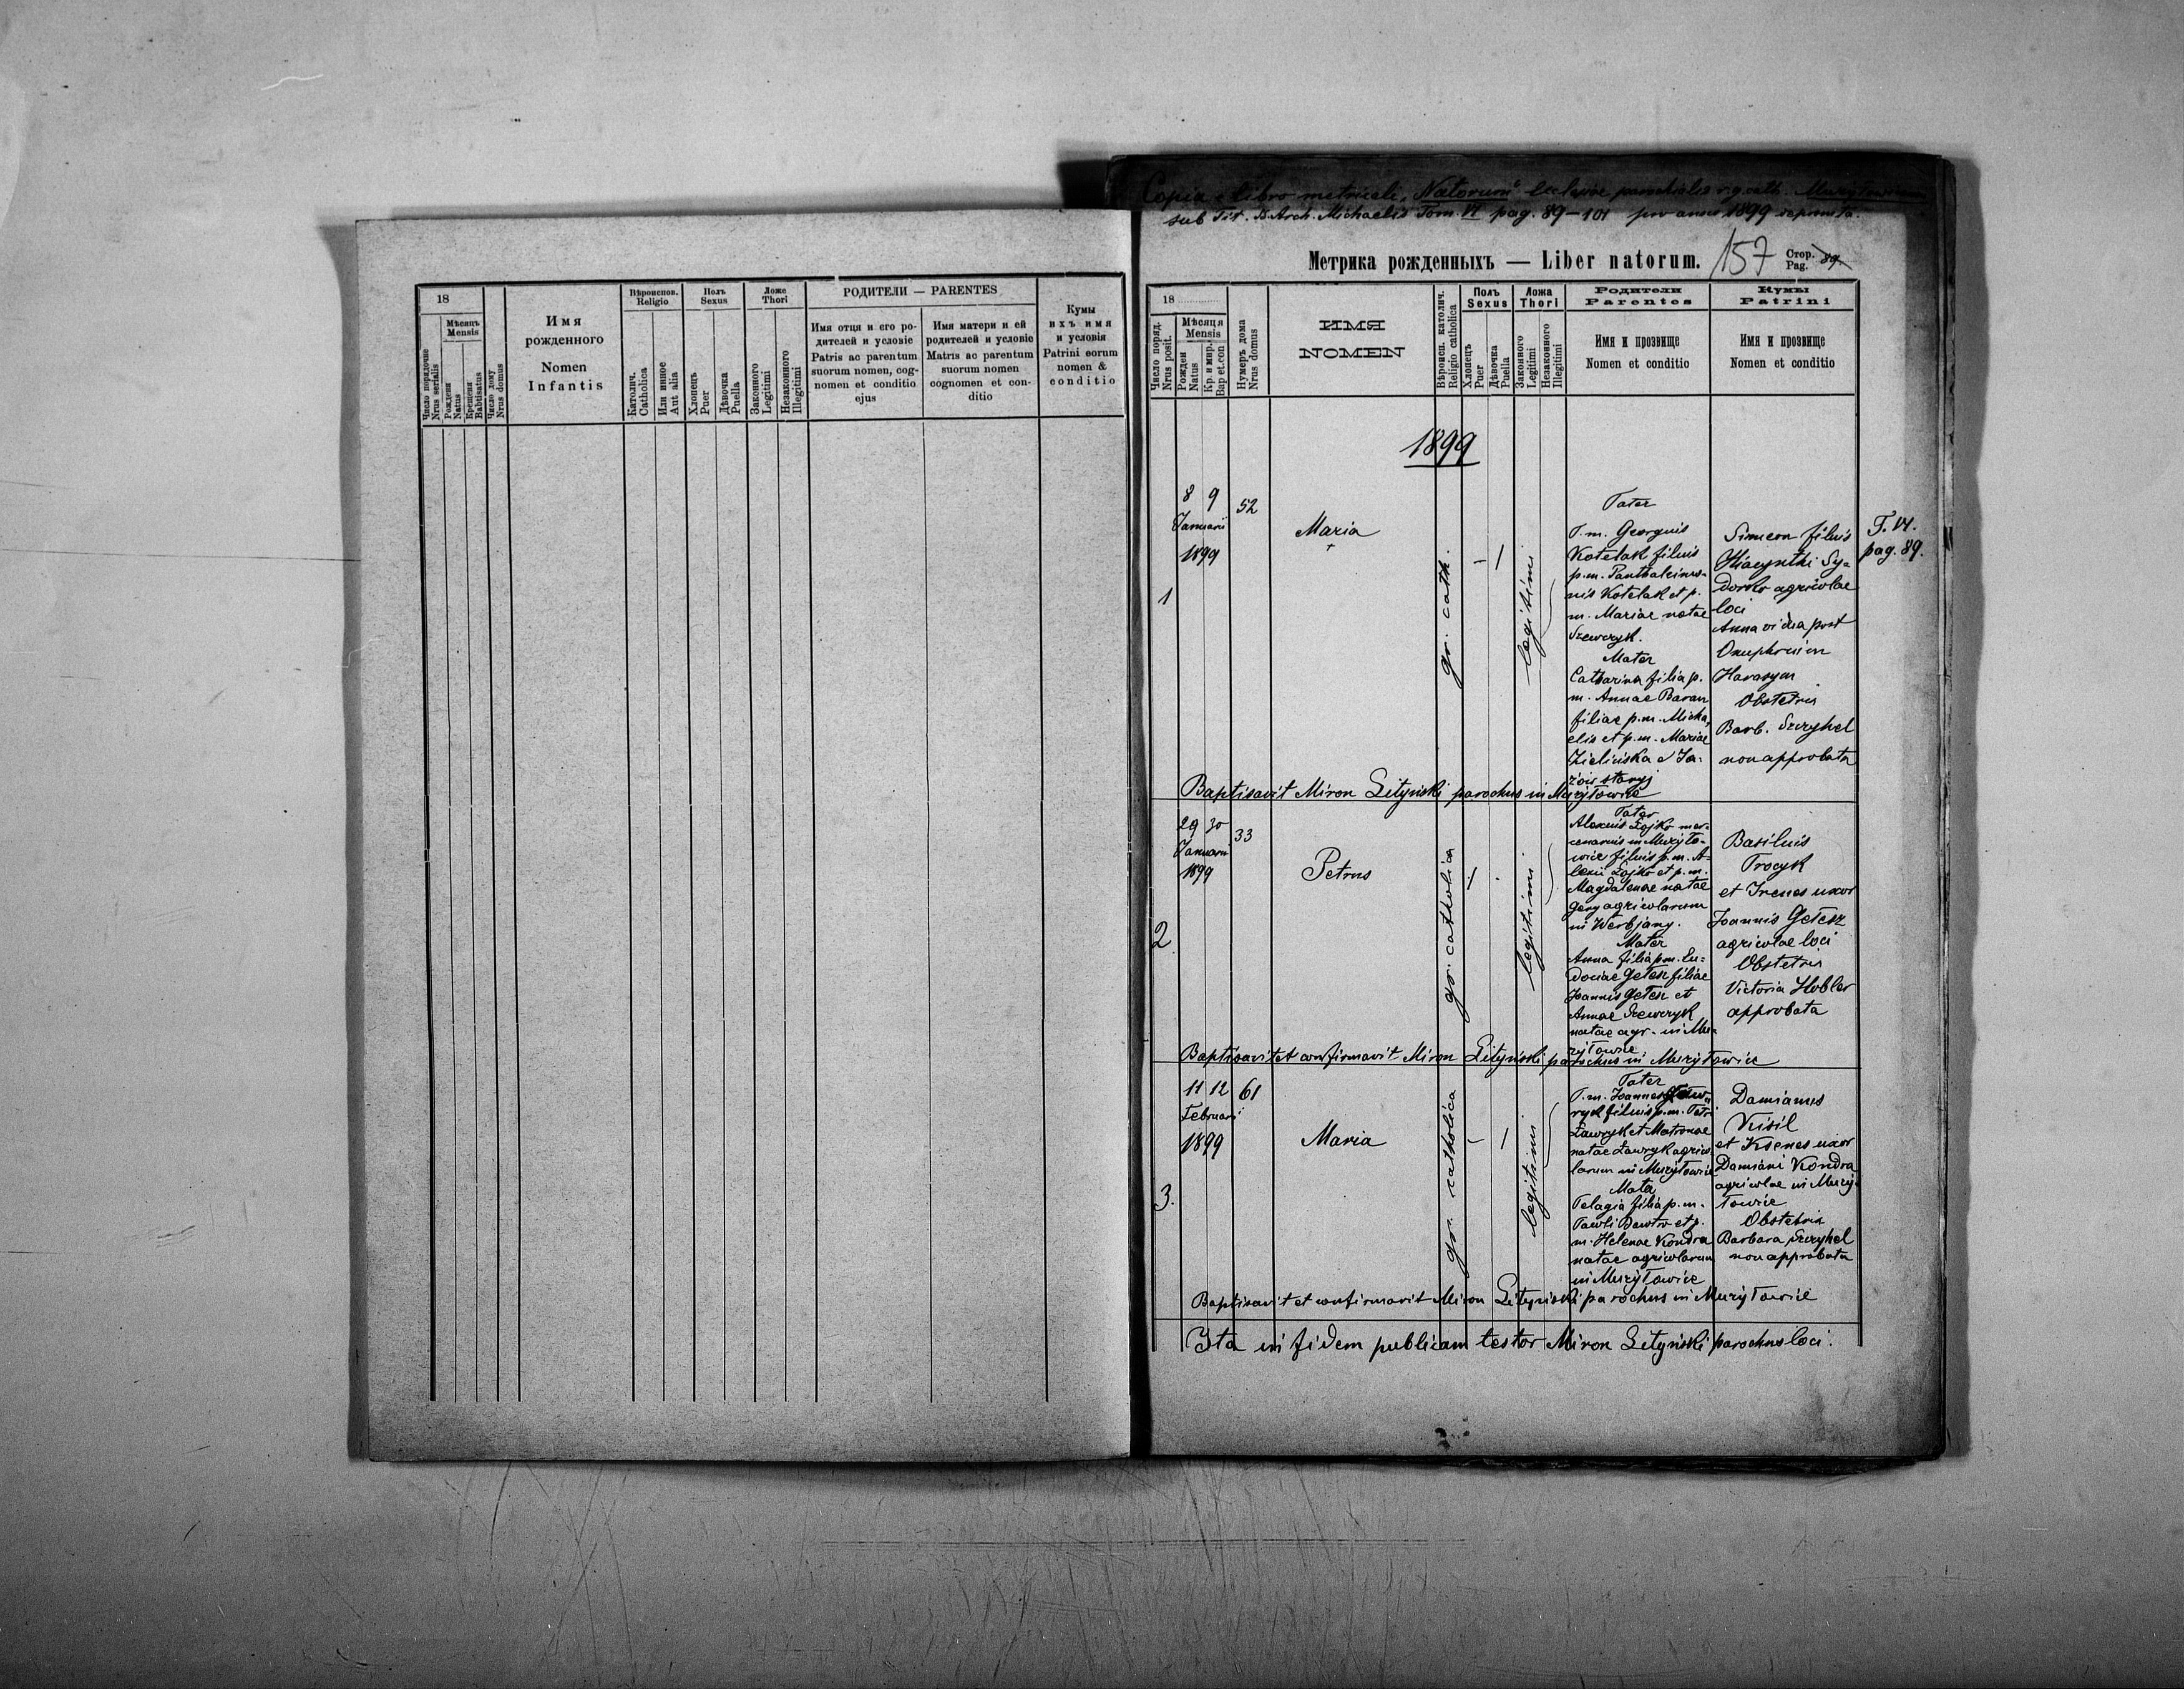 18
Число порядочне
Nrus serialis
Мѣсяць
Mensis
Рожденя
Natus
Крещеня
Babtisatus
Число дому
Nrus domus
Имя
рожденного
Nomen
Infantis
Вѣроиспов.
Religio
Католич.
Catholica
Или инное
Aut alia
Полъ
Sexus
Хлопець
Puer
Дѣвочка
Puella
Ложе
Thori
Законного
Legitimi
Незаконного
Illegitimi
РОДИТЕЛИ — PARENTES
Имя отця и его ро-
дителей и условіе
Patris ac parentum
suorum nomen, cog-
nomen et conditio
ejus
Имя матери и ей
родителей и условіе
Matris ac parentum
suorum nomen
cognomen et con-
ditio
Кумы
ихъ имя
и условія
Patrini eorum
nomen &
conditio
Copia e libro metricali „Natorum“ ecclesiae parochialis r. g. cath.
sub tit. B. Arch. Michaelis Tom. VI pag. 89-101 pro anno 1899
Метрика рожденныхъ — Liber natorum.
157
Стор.
Pag.
89
18
Число поряд.
Nrus posit.
Мѣсяця
Mensis
Рожден
Natus
Кр. и мир.
Bap et.con
Нумеръ дома
Nrus domus
ИМЯ
NOMEN
Вѣроисп. католич.
Religio catholica
Полъ
Sexus
Хлопецъ
Puer
Дѣвочка
Puella
Ложа
Thori
Законного
Legitimi
Незаконного
Illegitimi
Родители
Parentes
Имя и прозвище
Nomen et conditio
Кумы
Patrini
Имя и прозвище
Nomen et conditio
1899
1
8 9
Januarii
1899
52
Maria
+
gr. cath.
- 1
legitimi
Pater
P.m. Georgius
Kotelak filius
p.m. Panthaleimo-
nis Kotelak et p.
m. Mariae natae
Szewczyk.
Mater
Catharina filia p.
m. Annae Baran
filiae p.m. Micha-
elis et p.m. Mariae
Zielinska e Ja-
żów staryj
Simeon filius
Hiacynthi Sy-
dorko agricolae
loci
Anna vidua post
Onuphrium
Harasym
Obstetrix
Barb. Szczyhel
non approbata
T. VI.
pag. 89.
Baptisavit Miron Lityński parochus in Mużyłowice
2
29 30
Januarii
1899
33
Petrus
gr. catholica
1
legitimi
Pater
Alexius Łojko mer-
cenarius in Mużyło-
wice filius p.m. A-
lexii Łojko et p.m.
Magdalenae natae
Gery agricolarum
in Werbjany.
Mater
Anna filia p.m. Eu-
dociae Gełesz filiae
Joannis Gełesz et
Annae Szewczyk
natae agr. in Mu-
żyłowice
Basilius
Trocyk
et Irenes uxor
Joannis Gełesz
agricolae loci
Obstetrix
Victoria Hobler
approbata
Baptisavit et confirmavit Miron Lityński parochus in Mużyłowice
3.
11 12
Februarii
1899
61
Maria
gr. catholica
- 1
legitimi
Pater
P.m. Joannes Ław-
ryk filius p.m. Petri
Ławryk et Matronae
natae Ławryk agrico-
larum in Mużyłowice
Mater
Pelagia filia p.m.
Pawli et p.
m. Helenae Kondra
natae agricolarum
in Mużyłowice
Damianus
Kisil
et Ksenes uxor
Damiani Kondra
agricolae in Muży-
łowice
Obstetrix
Barbara Szczyhel
non approbata
Baptisavit et confirmavit Miron Lityński parochus in Mużyłowice
Ita in fidem publicam testor Miron Lityński parochus loci.